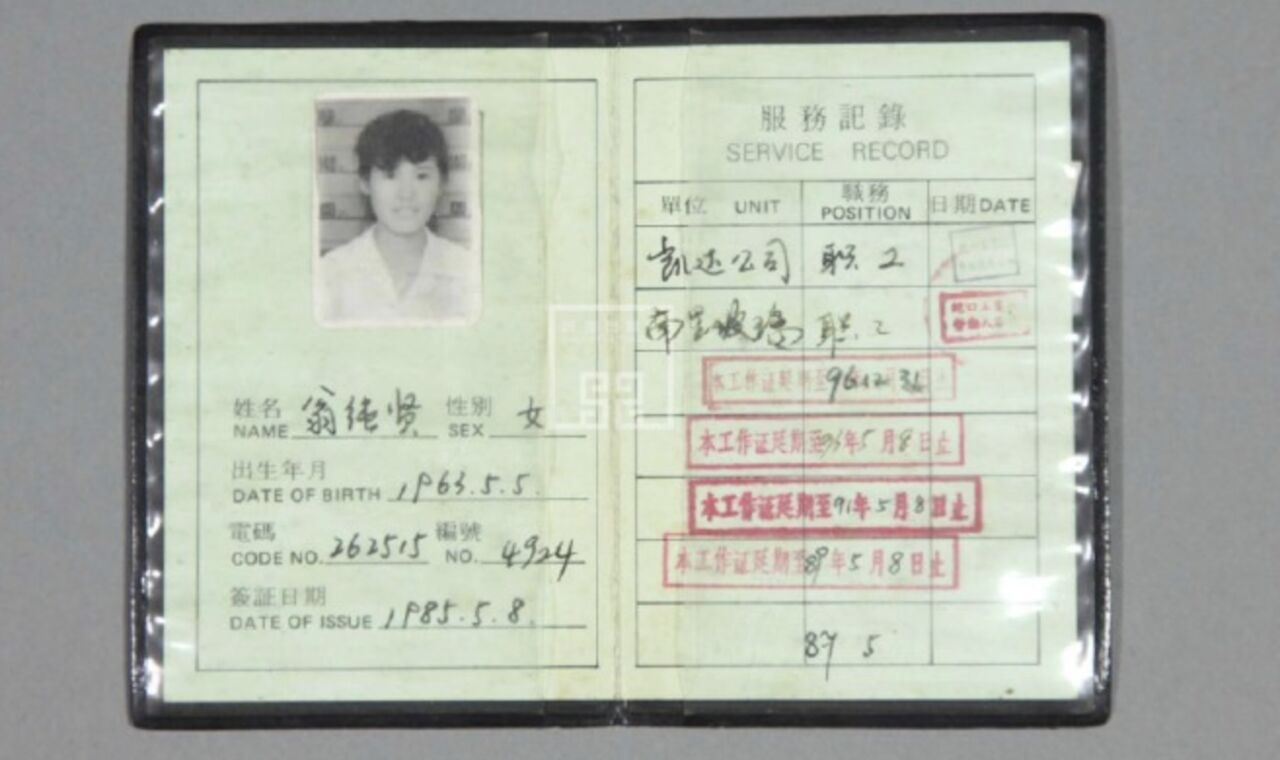 姓名 翁纯贤 性別 女
NAME SEX
出生年月
DATE OF BIRTH 1963.5.5.
電碼 編號
CODE NO. 262515 NO. 4924
簽証日期
DATE OF ISSUE 1985.5.8.
服務記錄
SERVICE RECORD
單位 UNIT 職務 POSITION 日期 DATE
凯达公司 职工
南 玻璃 职工
蛇口工
劳动人
本工作证延期至96 12 31日止
本工作证延期至 年5月8日止
本工作证延期至91年5月8日止
本工作证延期至89年5月8日止
87 5